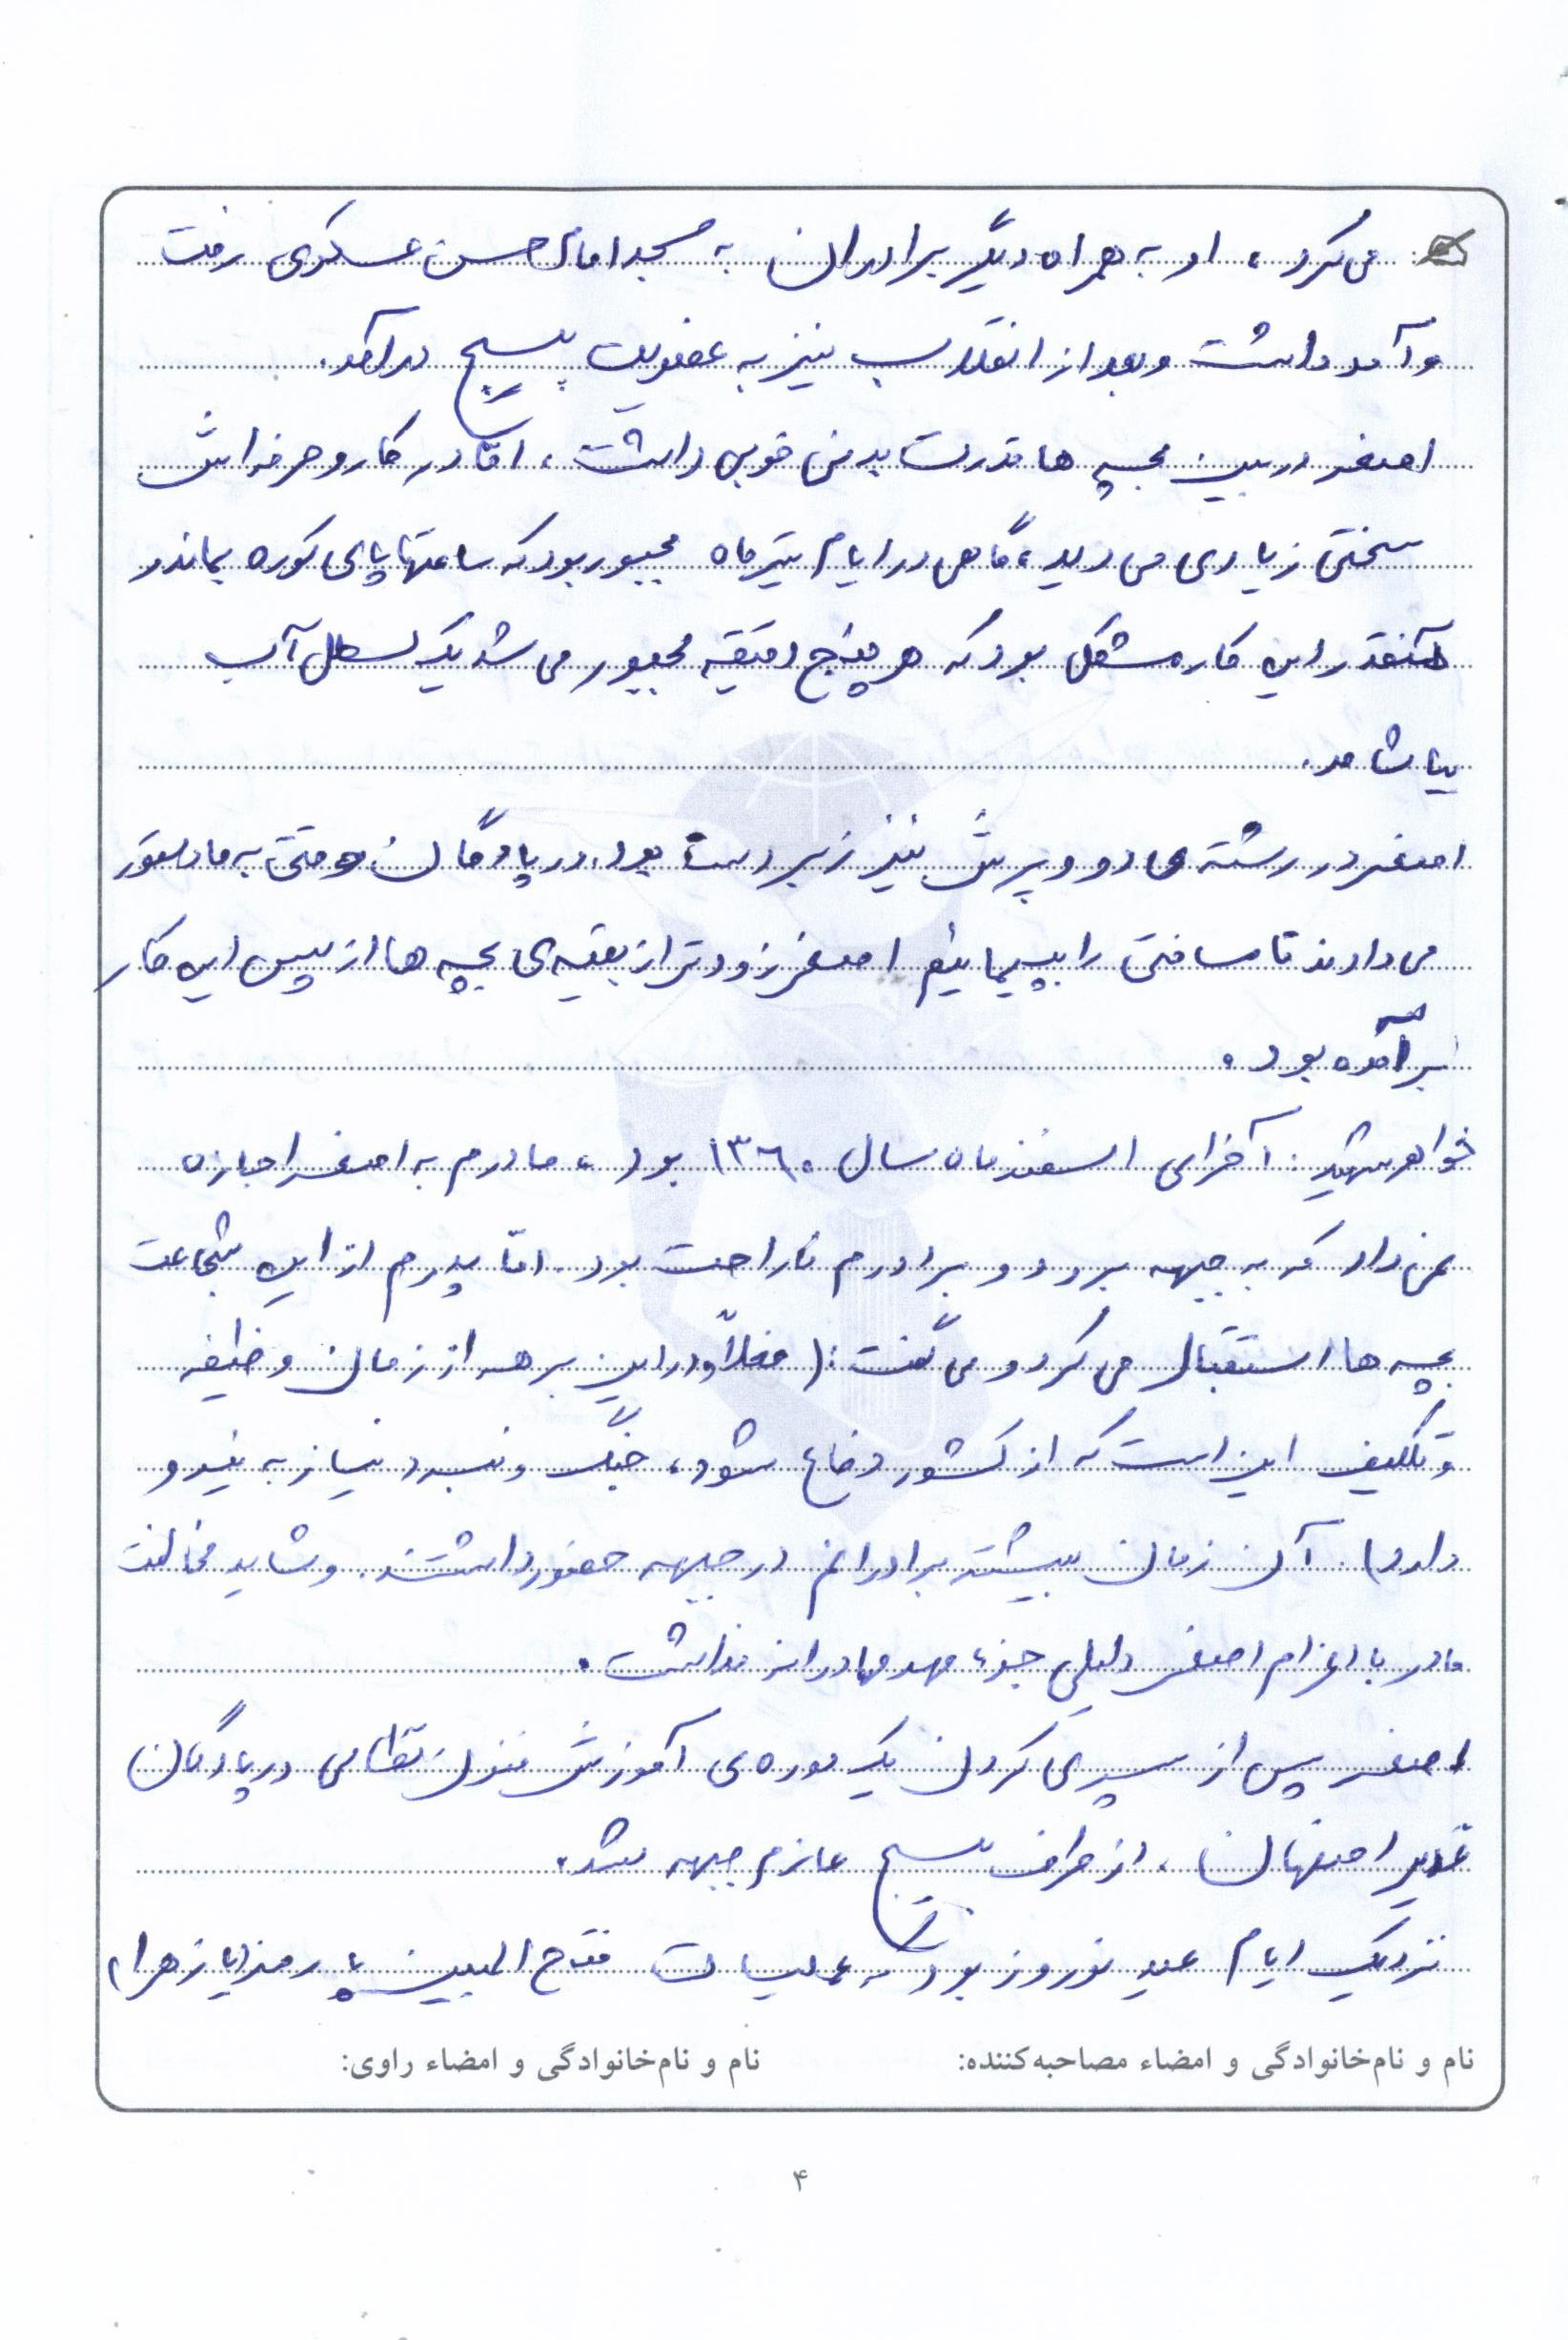 می کرد، او به همراه دیگر برادران به مسجد امام حسن عسکری رفت
و آمد داشت و بعد از انقلاب نیز به عضویت بسیج درآمد.
اصغر در بین بچه ها قدرت بدنی خوبی داشت، امّا در کار و حرفه اش
سختی زیادی می دید، گاهی در ایام تیرماه مجبور بود که ساعتها پای کوره بماند و
آنقدر این کار مشکل بود که هر پنج دقیقه مجبور می شد یک سطل آب
بیاشامد.
اصغر در رشته ی دو و پرش نیز زبردست بود. در پادگان وقتی به ما دستور
می دادند تا مسافتی را بپیمائیم اصغر زودتر از بقیه ی بچه ها از پس این کار
برآمده بود.
خواهر شهید: آخرای اسفند ماه سال ۱۳۶۰ بود، مادرم به اصغر اجازه
نمی داد که به جبهه برود و برادرم ناراحت بود. امّا پدرم از این شجاعت
بچه ها استقبال می کرد و می گفت: (فعلاً و در این برهه از زمان وظیفه
و تکلیف این است که از کشور دفاع شود، جنگ و نبرد نیاز به نیرو
دارد). آن زمان بیشتر برادرانم در جبهه حضور داشتند. و شاید مخالفت
مادر با اعزام اصغر دلیلی جزء مهر مادرانه نداشت.
اصغر پس از سپری کردن یک دوره ی آموزش فنون نظامی در پادگان
غدیر اصفهان، از طرف بسیج عازم جبهه شد.
نزدیک ایام عید نوروز بود که عملیات فتح المبین با رمز (یا زهرا)
نام و نام خانوادگی و امضاء مصاحبه کننده: نام و نام خانوادگی و امضاء راوی:
۴